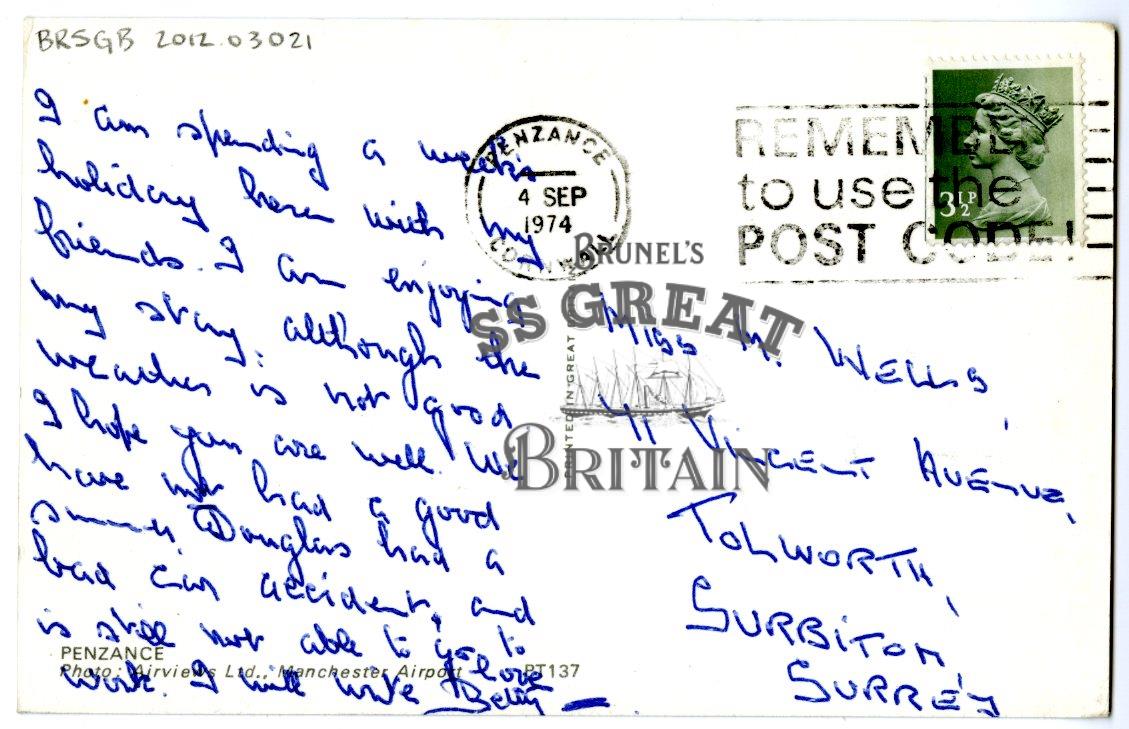 BRSGB 2012.03021
I am spending a week's
holiday here with my
friends. I am enjoying
my stay, although the
weather is not good
I hope you are well. We
have not had a good
summer, Douglas had a
bad car accident, and
is still not able to go to
work. I will write
Love
Betty
PENZANCE
Photo: Airviews Ltd., Manchester Airport PT137
PENZANCE
4 SEP
1974
CORNWALL
REMEMBER
to use the
POST CODE!
3½P
BRUNEL'S
SS GREAT
BRITAIN
PRINTED IN GREAT
Miss M. WELLS,
VINCENT AVENUE,
TOLWORTH,
SURBITON
SURREY